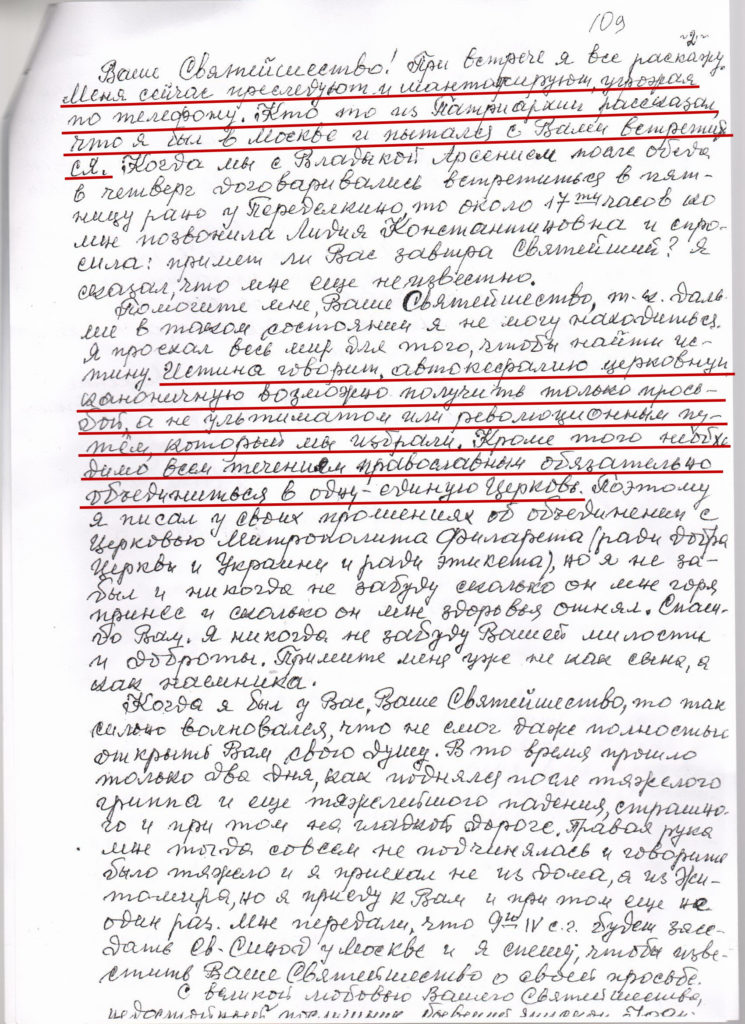 109
~2~
Ваше Святейшество! При встрече я все раскажу.
Меня сейчас преследуют и шантажируют, угрожая
по телефону. Кто то из Патриархии рассказал,
что я был в Москве и пытался с Вами встретит
ся. Когда мы с Владыкой Арсением после обеда
в четверг договаривались встретиться в пят-
ницу рано у Переделкино, то около 17ти часов ко
мне позвонила Лидия Константиновна и спро-
сила: примет ли Вас завтра Святейший? Я
сказал, что мне еще неизвестно.
Помогите мне, Ваше Святейшество, т.к. даль-
ше в таком состоянии я не могу находиться.
Я проехал весь мир для того, чтобы найти ис-
тину. Истина говорит, автокефалию церковную
каноничную возможно получить только прось-
бой, а не ультиматом или революционным пу-
тём, который мы избрали. Кроме того необхо
димо всем течением православным обязательно
объединиться в одну-единую Церковь. Поэтому
я писал у своих прошениях об объединении с
Церковью Митрополита Филарета (ради добра
Церкви и Украини и ради этикета), но я не за-
был и никогда не забуду сколько он мне горя
принес и сколько он мне здоровья отнял. Спаси-
бо Вам. Я никогда не забуду Вашей милости
и доброты. Примите меня уже не как сына, а
как наемника.
Когда я был у Вас, Ваше Святейшество, то так
сильно волновался, что не смог даже полностью
открыть Вам свою душу. В то время прошло
только два дня, как поднялся после тяжелого
гриппа и еще тяжелейшого падения, страшно-
го и при том на гладкой дороге. Правая рука
мне тогда совсем не подчинялась и говорить
было тяжело и я приехал не из дома, а из Жи-
томира, но я приеду к Вам и при том еще не
один раз. Мне передали, что 9го IV с.г. будет засе-
дать Св. Синод у Москве и я спешу, чтобы изве-
стить Ваше Святейшество о своей просьбе.
С великой любовью Вашего Святейшества,
недостойный послушник